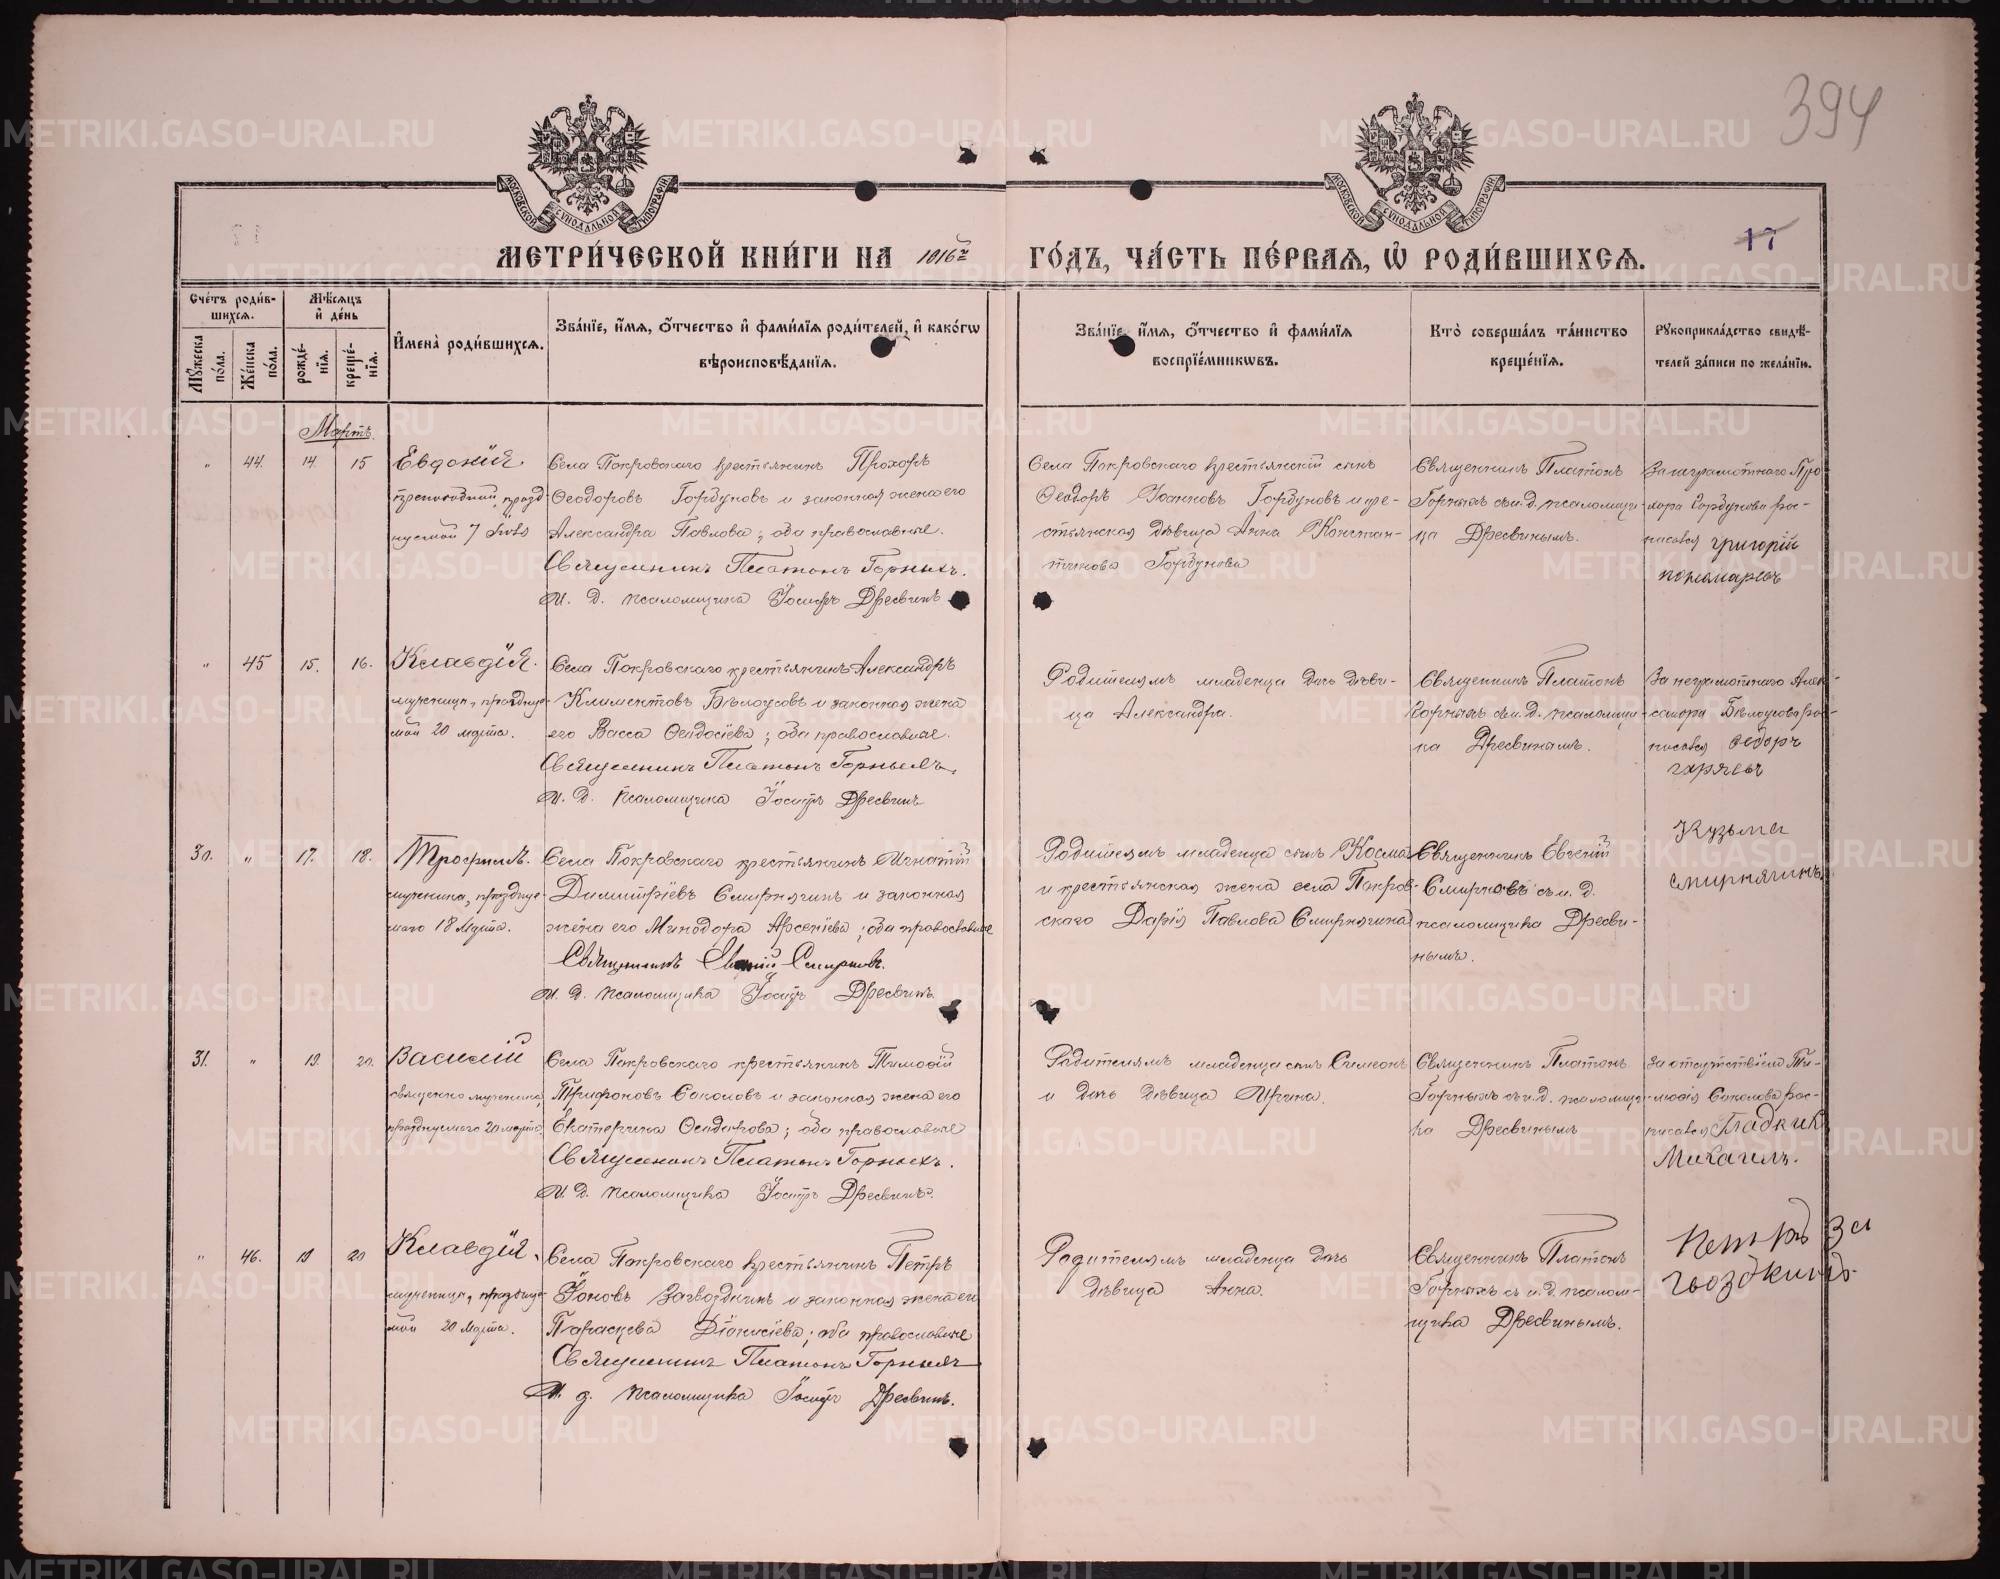 394
МОСКОВСКОЙ СѴНОДАЛЬНОЙ ТИПОГРАФИИ
МОСКОВСКОЙ СѴНОДАЛЬНОЙ ТИПОГРАФИИ
17
МЕТРИ́ЧЕСКОЙ КНИ́ГИ НА 1916 ГО́ДЪ, ЧА́СТЬ ПЕ́РВАѦ, Ѡ҆ РОДИ́ВШИХСѦ.
Сче́тъ роди́в-
шихсѧ.
Мѣ́сѧцъ
и҆ де́нь
И҆мена̀ роди́вшихсѧ.
Зва́нїе, и҆́мѧ, ѻ҆́тчество и҆ фами́лїѧ роди́телей, и҆ како́гѡ
вѣроисповѣ́данїѧ.
Зва́нїе, и҆́мѧ, ѻ҆́тчество и҆ фами́лїѧ
воспрїе́мникѡвъ.
Кто̀ соверша́лъ та́инство
креще́нїѧ.
Рꙋкоприкла́дство свидѣ́-
телей за́писи по жела́нїю.
Мꙋ́жеска
по́ла.
Же́нска
по́ла.
рожде́-
нїѧ.
креще́-
нїѧ.
Мартъ.
" 44. 14. 15 Евдокія
преподобной, празд-
нуемой 7 Авг.
Села Покровскаго крестьянинъ Прохоръ
Ѳеодоровъ Горбуновъ и законная жена его
Александра Павлова; оба православные.
Священникъ Платонъ Горныхъ.
И. д. псаломщика Іосифъ Дресвинъ
Села Покровскаго крестьянскій сынъ
Ѳеодоръ Іоанновъ Горбуновъ и кре-
стьянская дѣвица Анна Констан-
тинова Горбунова
Священникъ Платонъ
Горныхъ съ и. д. псаломщи-
ка Дресвинымъ.
За неграмотнаго Про-
хора Горбунова рос-
писался григорій
пономарев
" 45 15. 16. Клавдія.
мученицы, празднуе-
мой 20 марта.
Села Покровскаго крестьянинъ Александръ
Климентовъ Бѣлоусовъ и законная жена
его Васса Ѳеодосіева; оба православные.
Священникъ Платонъ Горныхъ.
И. д. псаломщика Іосифъ Дресвинъ
Родителямъ младенца дочь дѣви-
ца Александра.
Священникъ Платонъ
Горныхъ съ и. д. псаломщи-
ка Дресвинымъ.
За неграмотнаго Алек-
сандра Бѣлоусова рос-
писался Ѳедоръ
30. " 17. 18. Трофимъ.
мученика, празднуе-
маго 18 Марта.
Села Покровскаго крестьянинъ Игнатій
Димитріевъ Смирнягинъ и законная
жена его Минодора Арсеніева; оба православные
Священникъ Евгеній Смирновъ.
И. д. псаломщика Іосифъ Дресвинъ.
Родителямъ младенца сынъ Косма
и крестьянская жена села Покров-
скаго Дарія Павлова Смирнягина
Священникъ Евгеній
Смирновъ съ и. д.
псаломщика Дресви-
нымъ.
Кузьма
Смирнягинъ
31. " 19 20. Василій
священномученика,
празднуемаго 20 марта.
Села Покровскаго крестьянинъ Тимоѳей
Трифоновъ Соколовъ и законная жена его
Екатерина Ѳеодорова; оба православные
Священникъ Платонъ Горныхъ.
И. д. псаломщика Іосифъ Дресвинъ.
Родителямъ младенца сынъ Симеонъ
и дочь дѣвица Ирина.
Священникъ Платонъ
Горныхъ съ и. д. псаломщи-
ка Дресвинымъ
За отсутствіемъ Ти-
моѳея Соколова рос-
писался Гладких
Михаилъ.
" 46. 19 20 Клавдія.
мученицы, празднуе-
мой 20 Марта.
Села Покровскаго крестьянинъ Петръ
Іоновъ Загвоздкинъ и законная жена его
Параскева Діонисіева; оба православные
Священникъ Платонъ Горныхъ
И. д. псаломщика Іосифъ Дресвинъ.
Родителямъ младенца дочь
дѣвица Анна.
Священникъ Платонъ
Горныхъ съ и. д. псалом-
щика Дресвинымъ.
Петръ За
гвоздкинъ
METRIKI.GASO-URAL.RU